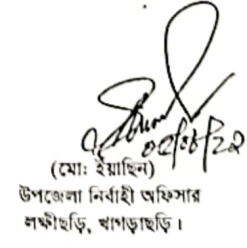 (মোঃ ইয়াছিন)
উপজেলা নির্বাহী অফিসার
লক্ষীছড়ি, খাগড়াছড়ি।